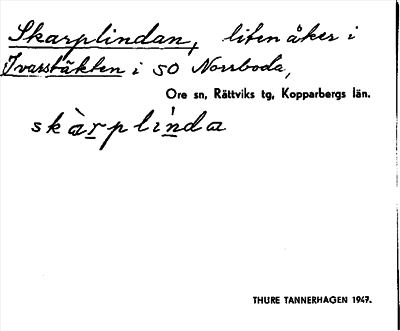 Skarplindan, liten åker i
Ivarstäkten i SO Norrboda,
Ore sn, Rättviks tg, Kopparbergs län.
skàrplìnda
THURE TANNERHAGEN 1947.